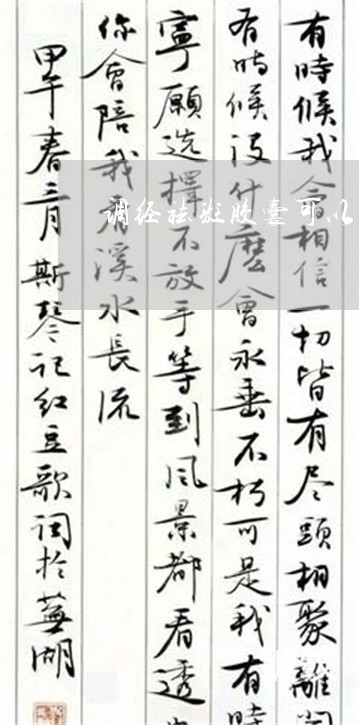 有時候我会相信一切皆有尽頭相聚離開
有時候没什麽會永垂不朽可是我有時
寧願选擇不放手等到風景都看透
你會陪我看溪水長流
甲午春三月斯琴记红豆歌词於蕪湖
调经祛斑胶囊可以